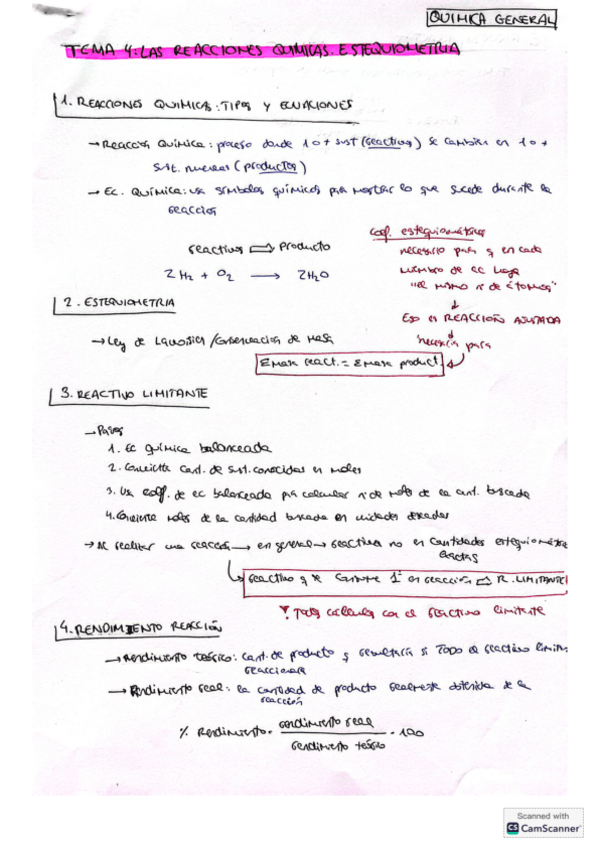 QUIMICA GENERAL
TEMA 4: LAS REACCIONES QUIMICAS. ESTEQUIOMETRIA
1. REACCIONES QUIMICAS: TIPOS Y ECUACIONES
→ Reacción Química: proceso donde 1 o + sust (reactivos) se cambian en 1 o +
sust. nuevas (productos)
→ Ec. Química: usa símbolos químicos para mostrar lo que sucede durante la
reacción
reactivos ⇒ Producto
2H₂ + O₂ → 2H₂O
Coef. estequiométricos
necesario para q en cada
miembro de ec haya
"el mismo nº de átomos"
↓
Eso es REACCIÓN AJUSTADA
↓
necesaria para
2. ESTEQUIOMETRIA
→ Ley de Lavoisier / Conservacion de Masa
Σ masa react. = Σ masa product
3. REACTIVO LIMITANTE
→ Pasos
1. Ec química balanceada
2. Convierte cant. de sust. conocidas en moles
3. Usa coef. de ec balanceada pra calcular nº de moles de la cant. buscada
4. Convierte moles de la cantidad buscada en unidades deseadas
→ Al realizar una reacción → en general → reactivos no en cantidades estequiométric
exactas
reactivo q se consume 1º en reacción ⇒ R. LIMITANTE
! Todos cálculos con el reactivo limitante
4. RENDIMIENTO REACCIÓN
→ Rendimiento teórico: cant. de producto q resultaría si TODO el reactivo limitan
reaccionara
→ Rendimiento real: la cantidad de producto realmente obtenida de la
reacción
% Rendimiento = rendimiento real / rendimiento teórico · 100
Scanned with
CS CamScanner